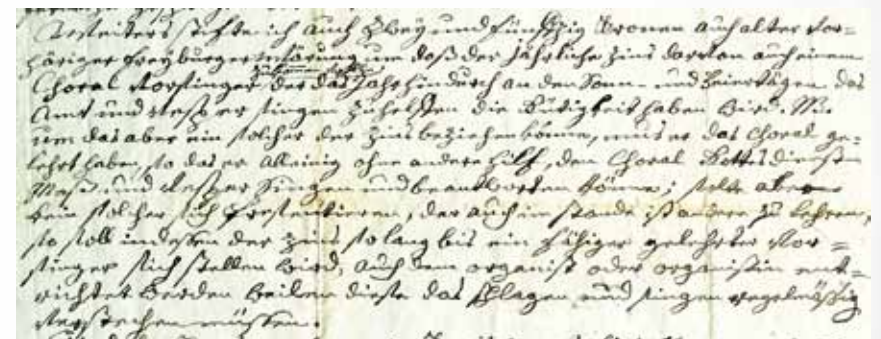 Testeiters stifte ich auch Zwey und fünffzig Cronen auch alter vor=
höriger freyburger wehrung um daß der Jährliche Zins darvon auch einem
Choral Vorsinger, der das Jahr hindurch an den Sonn- und Feiertägen das
Amt und Vesper singen zu helffen die Gütigkeit haben wird.
um das aber ein solcher der Zins beziehen könne, mus er das Choral ge=
lehrt haben, so das er Alleinig ohne andere hilf, den Choral Gottesdienst
Mess und Vesper Singen und beantworten könne; solte aber
kein solcher sich presentieren, der auch im stande ist andere zu lehren,
so soll indessen der Zins so lang bis ein fähiger gelehrter Vor=
singer sich stellen wird, auch dem organist oder organistin ent=
richtet werden weilen diese das schlagen und singen regelmässig
verstechen müssen.